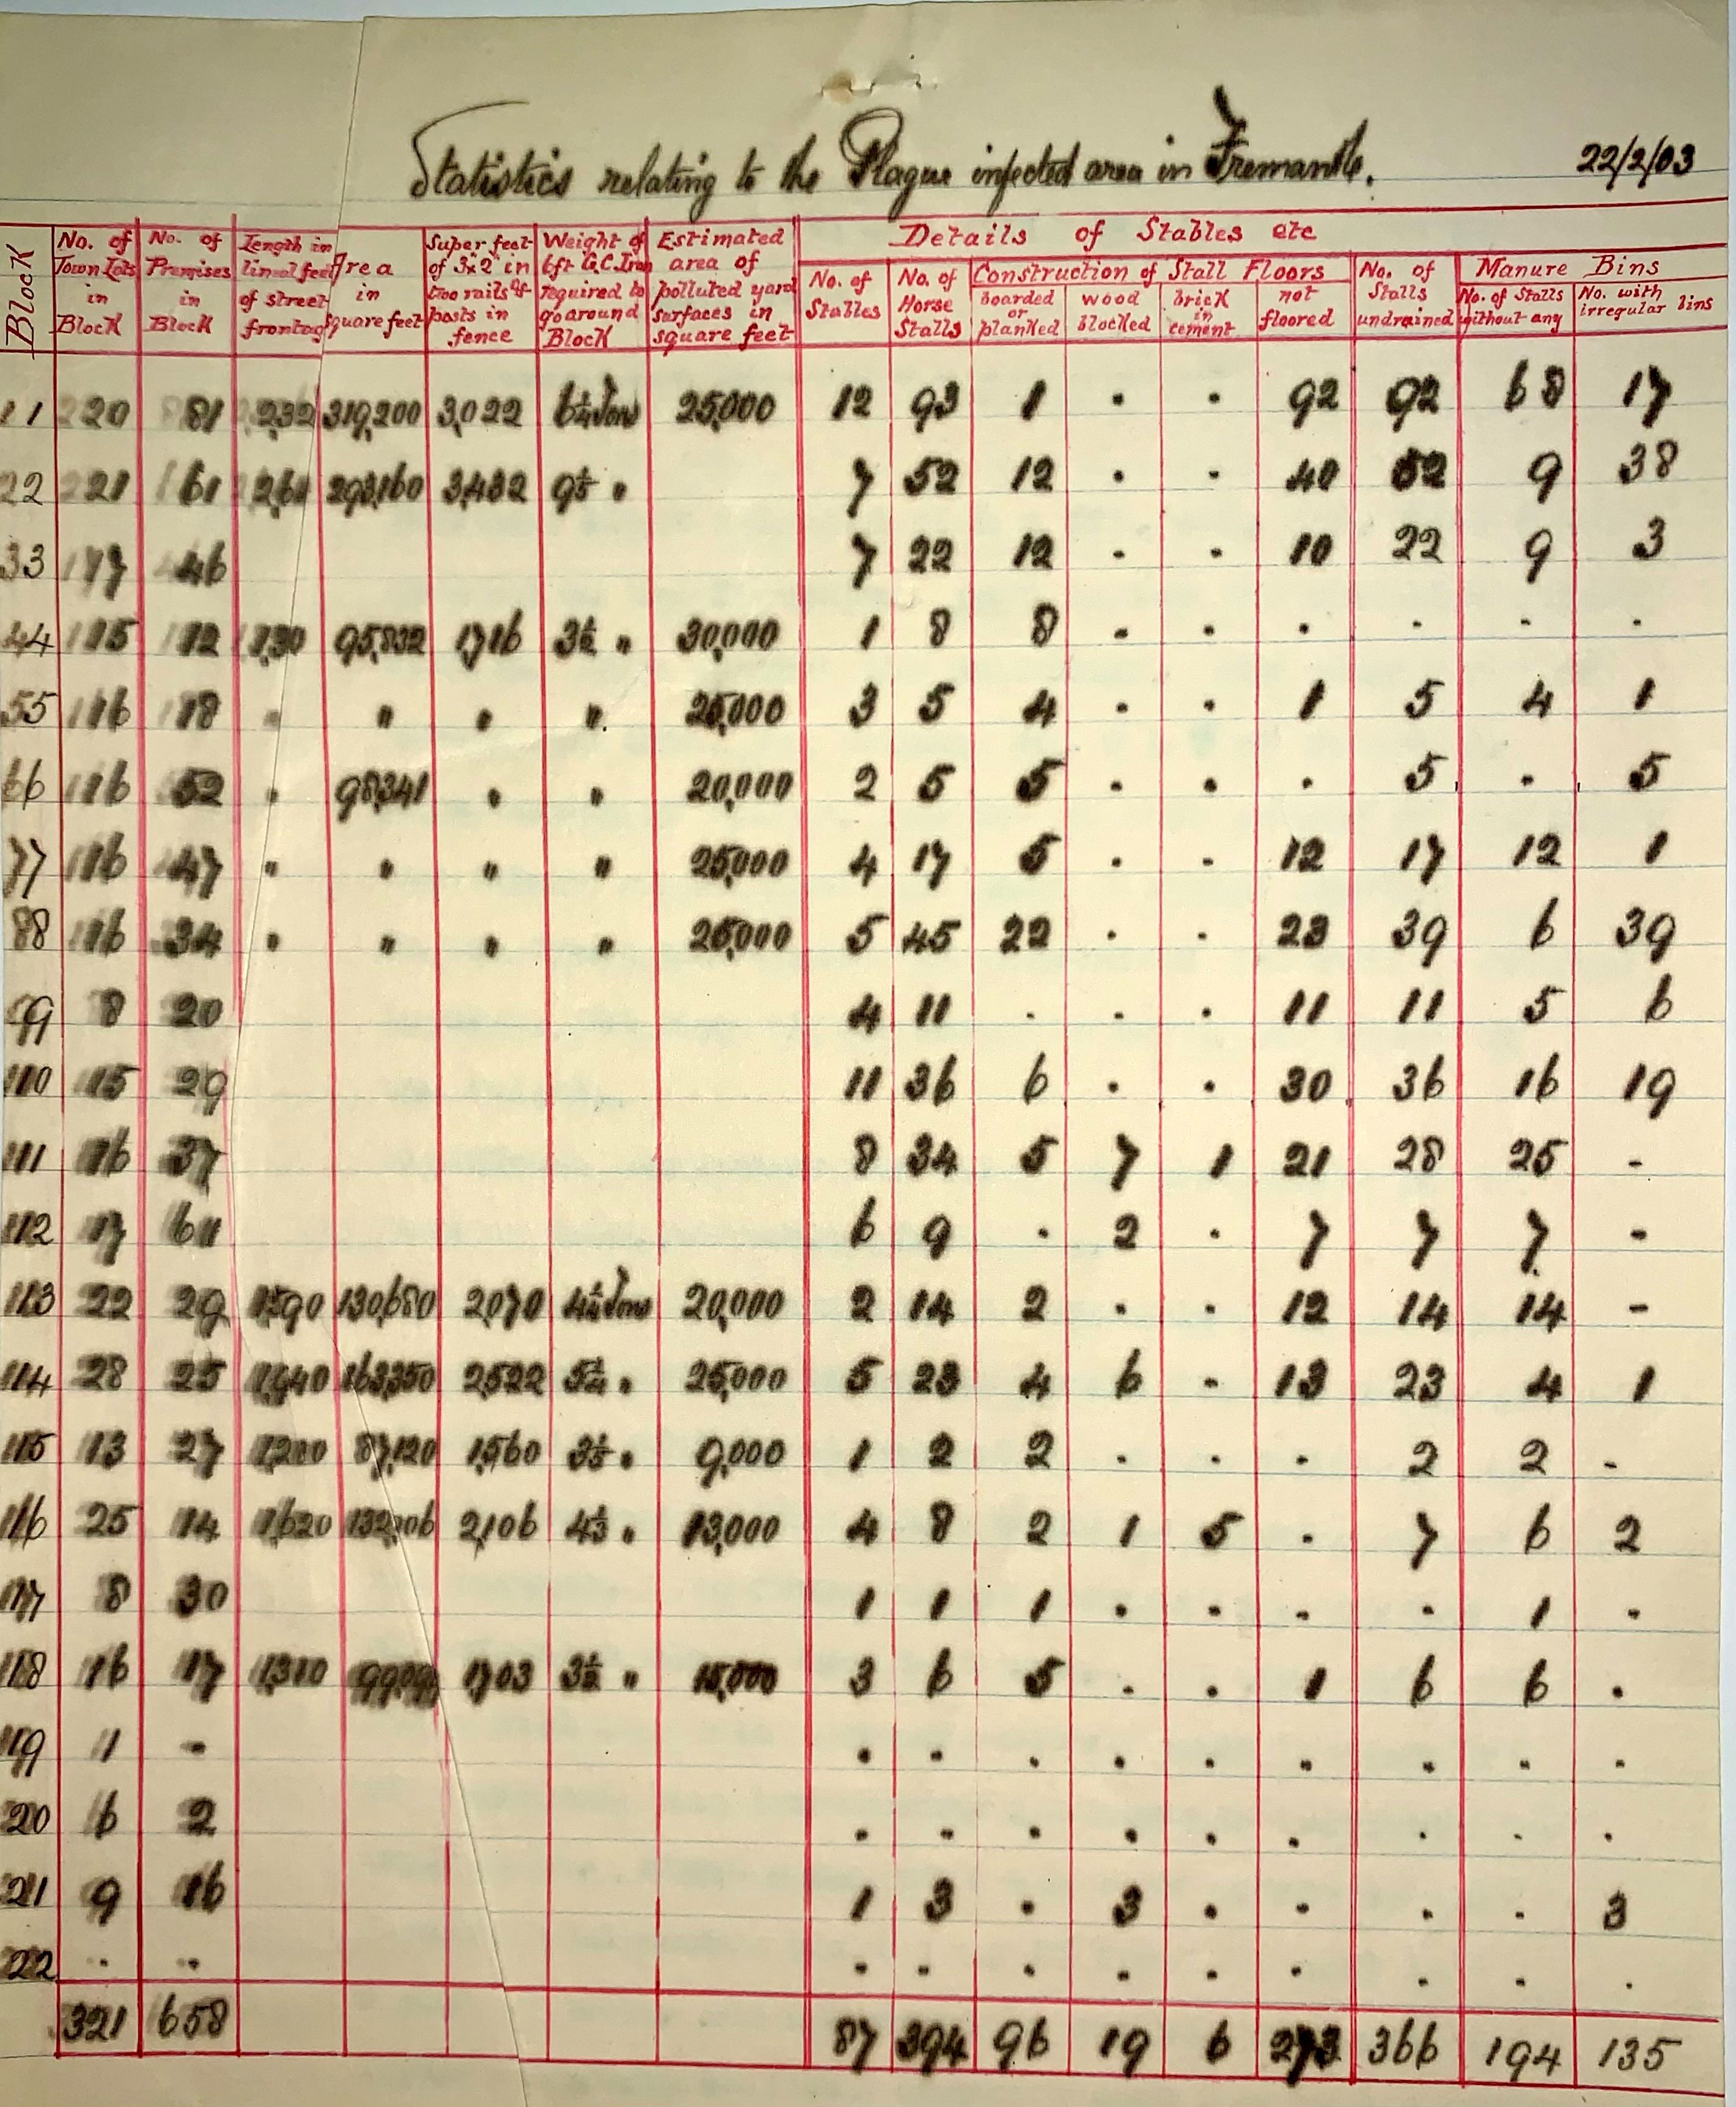 Statistics relating to the Plague infected area in Fremantle. 22/2/03
Block
No. of Town Lots in Block
No. of Premises in Block
Length in lineal feet of street frontage
Area in square feet
Super feet of 3"x2" in two rails & posts in fence
Weight of 6ft G.C. Iron required to go around Block
Estimated area of polluted yard surfaces in square feet
Details of Stables etc
No. of Stables
No. of Horse Stalls
Construction of Stall Floors
boarded or planked
wood blocked
brick in cement
not floored
No. of Stalls undrained
Manure Bins
No. of Stalls without any
No. with irregular bins
1 20 81 319,200 3,022 6¼ Tons 25,000 12 93 1 . . 92 92 68 17
2 21 61 293,160 3,432 " 7 52 12 . - 40 52 9 38
3 17 46 7 22 12 - . 10 22 9 3
4 15 12 1,330 95,832 1,716 3½ " 30,000 1 8 8 - . . . . .
5 16 18 " " " " 25,000 3 5 4 . . 1 5 4 1
6 16 52 " 98,341 " " 20,000 2 5 5 . . . 5 . 5
7 16 47 " " " " 25,000 4 17 5 . - 12 17 12 1
8 16 34 " " " " 25,000 5 45 22 . . 23 39 6 39
9 8 20 4 11 . . . 11 11 5 6
10 15 29 11 36 6 . . 30 36 16 19
11 16 37 8 34 5 7 1 21 28 25 -
12 17 61 6 9 . 2 . 7 7 7 -
13 22 29 1,590 130,680 2,070 4¼ Tons 20,000 2 14 2 . . 12 14 14 -
14 28 25 1,940 163,350 2,522 5¼ " 25,000 5 23 4 6 - 13 23 4 1
15 13 27 1,200 87,120 1,560 " 9,000 1 2 2 . . . 2 2 -
16 25 14 1,620 2,106 4⅓ " 13,000 4 8 2 1 5 . 7 6 2
17 8 30 1 1 1 . - - - 1 -
18 16 17 1,310 1,703 3½ " 15,000 3 6 5 . . 1 6 6 .
19 1 - . . . . . . . . .
20 6 2 . . . . . . . . .
21 9 16 1 3 . 3 . . . . 3
22 . . . . . . . . . . .
321 658 87 394 96 19 6 273 366 194 135